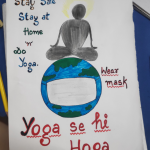 Stay Safe
Stay at
Home
'n'
Do
Yoga.
Wear
mask
Yoga se hi
Hoga